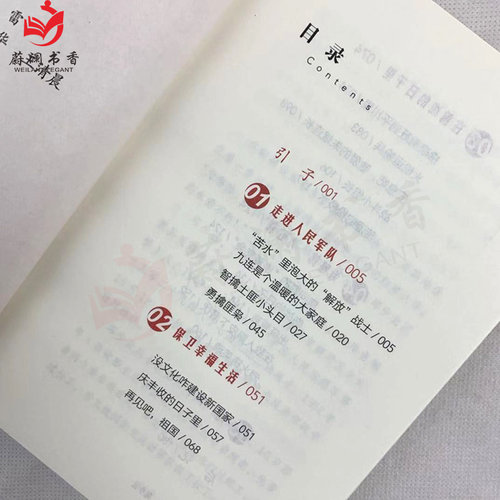 蔚斓书香
WEILAN ELEGANT
目录
Contents
引子/001
01 走进人民军队/005
“苦水”里泡大的“解放”战士/005
九连是个温暖的大家庭/020
智擒土匪小头目/027
勇擒匪枭/045
02 保卫幸福生活/051
没文化咋建设新国家/051
庆丰收的日子里/057
再见吧，祖国/068